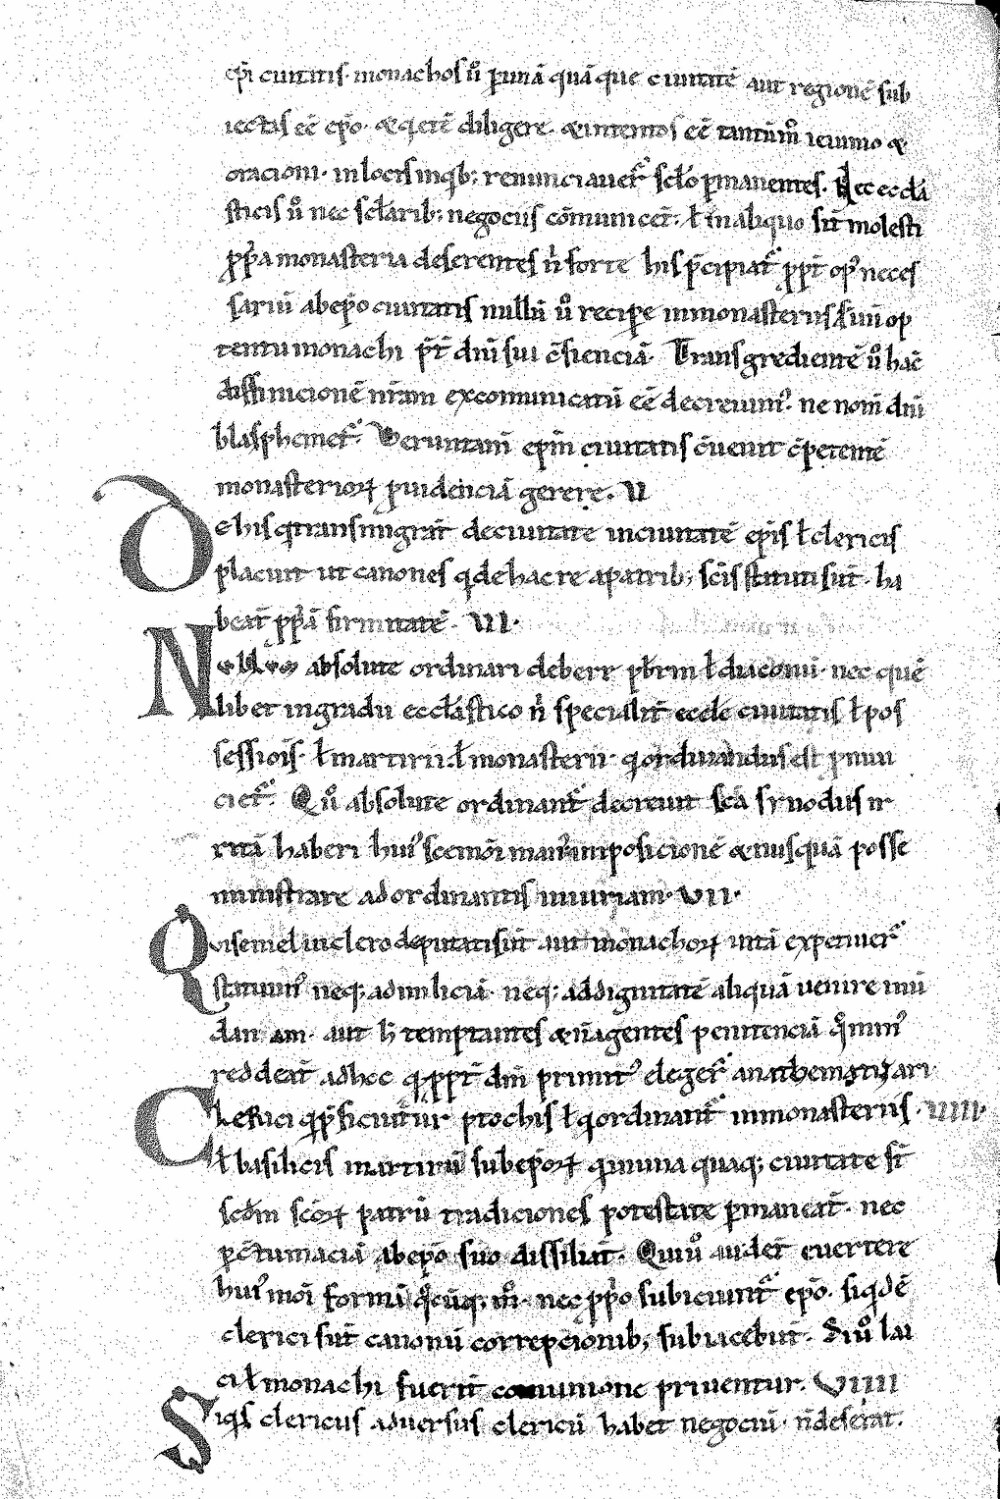 epi ciuitatis. monachos uº p unā quāque ciuitatē aut regionē sub
iectos eē epo. & qetē diligere. & intentos eē tantūmº ieiunio &
oracioni. in locis in qb; renunciauer̄ scło pmanentes. Nec eccła
sticis uº nec scłarib; negociis cōmunicent. ł in aliquo sint molesti
ppa monasteria deserentes n̄ forte his pcipiat̄ ppt op' neces
sariū ab epo ciuitatis nullū uº recipe in monasteriis suū op
tentu monachi p̄t dnī sui c̄scienciā. Transgrediente uº hāc
diffinicionē nr̄am excomunicatū eē decreuim'. ne nom̄ dnī
blasphemet̄. Veruntam̄ epm ciuitatis c̄uenit c̄petentē
monasterioꝝ puidenciā gerere. V
De his q transmigrant de ciuitate in ciuitatē epis ł clericis
placuit ut canones q de hac re a patrib; scīs statuti sunt. ha
beant ppā firmitatē. VI.
Nullum absolute ordinari deberr pbrm ł diaconū. nec quē
libet in gradu eccłastico n̄ specialit̄ ecclę ciuitatis ł pos
sessiois. ł martirii. ł monasterii. q ordinandus est pnun
ciet̄. Quº absolute ordinant̄ decreuit scā synodus ir
ritā haberi hui'scemoi man' imposicionē & nusquā posse
ministrare ad ordinantis iniuriam. VII.
Qui semel in clero deputati sūt aut monachoꝝ uitā expetiuer̄
statuim' neq; ad miliciā. neq; ad dignitatē aliquā uenire mū
danam. aut h̄ temptantes & n̄ agentes penitenciā qºmin'
redeāt ad hoc q ppt dm̄ primit' eleger̄ anathematizari
Clerici q pficiunt̄ur ptochis ł q ordinant̄ in monasteriis. VIII.
ł basilicis martirū sub epoꝝ q in una quaq; ciuitate st̄
scdm scōꝝ patrū tradiciones potestate pmaneāt. nec
p c̄tumaciā ab epo suo dissiliāt. Qui uº audet euertere
hui'moi formā qºcūq; mº. nec ppo subiciunt̄ epo. siqdē
clerici sūt canonū correpcionib; subiacebūt. Si uº lai
ci ł monachi fuerit comunione priuentur. VIIII
Siqs clericus aduersus clericū habet negociū. n̄ deserat.